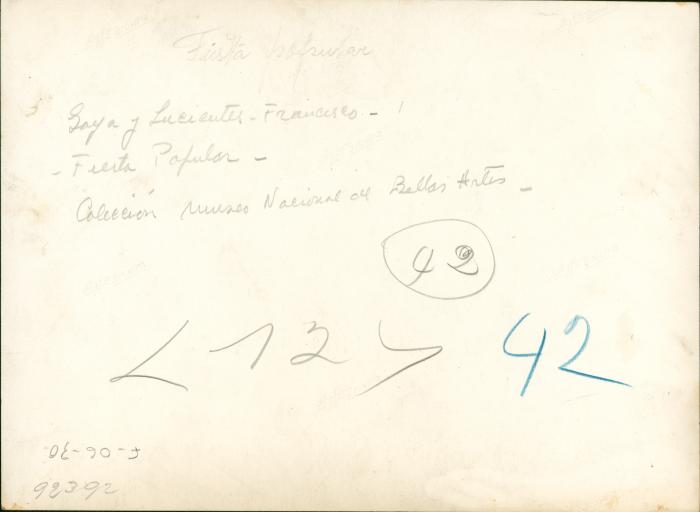 Fiesta popular
Goya y Lucientes - Francisco -
- Fiesta Popular -
Colección Museo Nacional de Bellas Artes -
42
< 12 >
42
F-06-30
92392